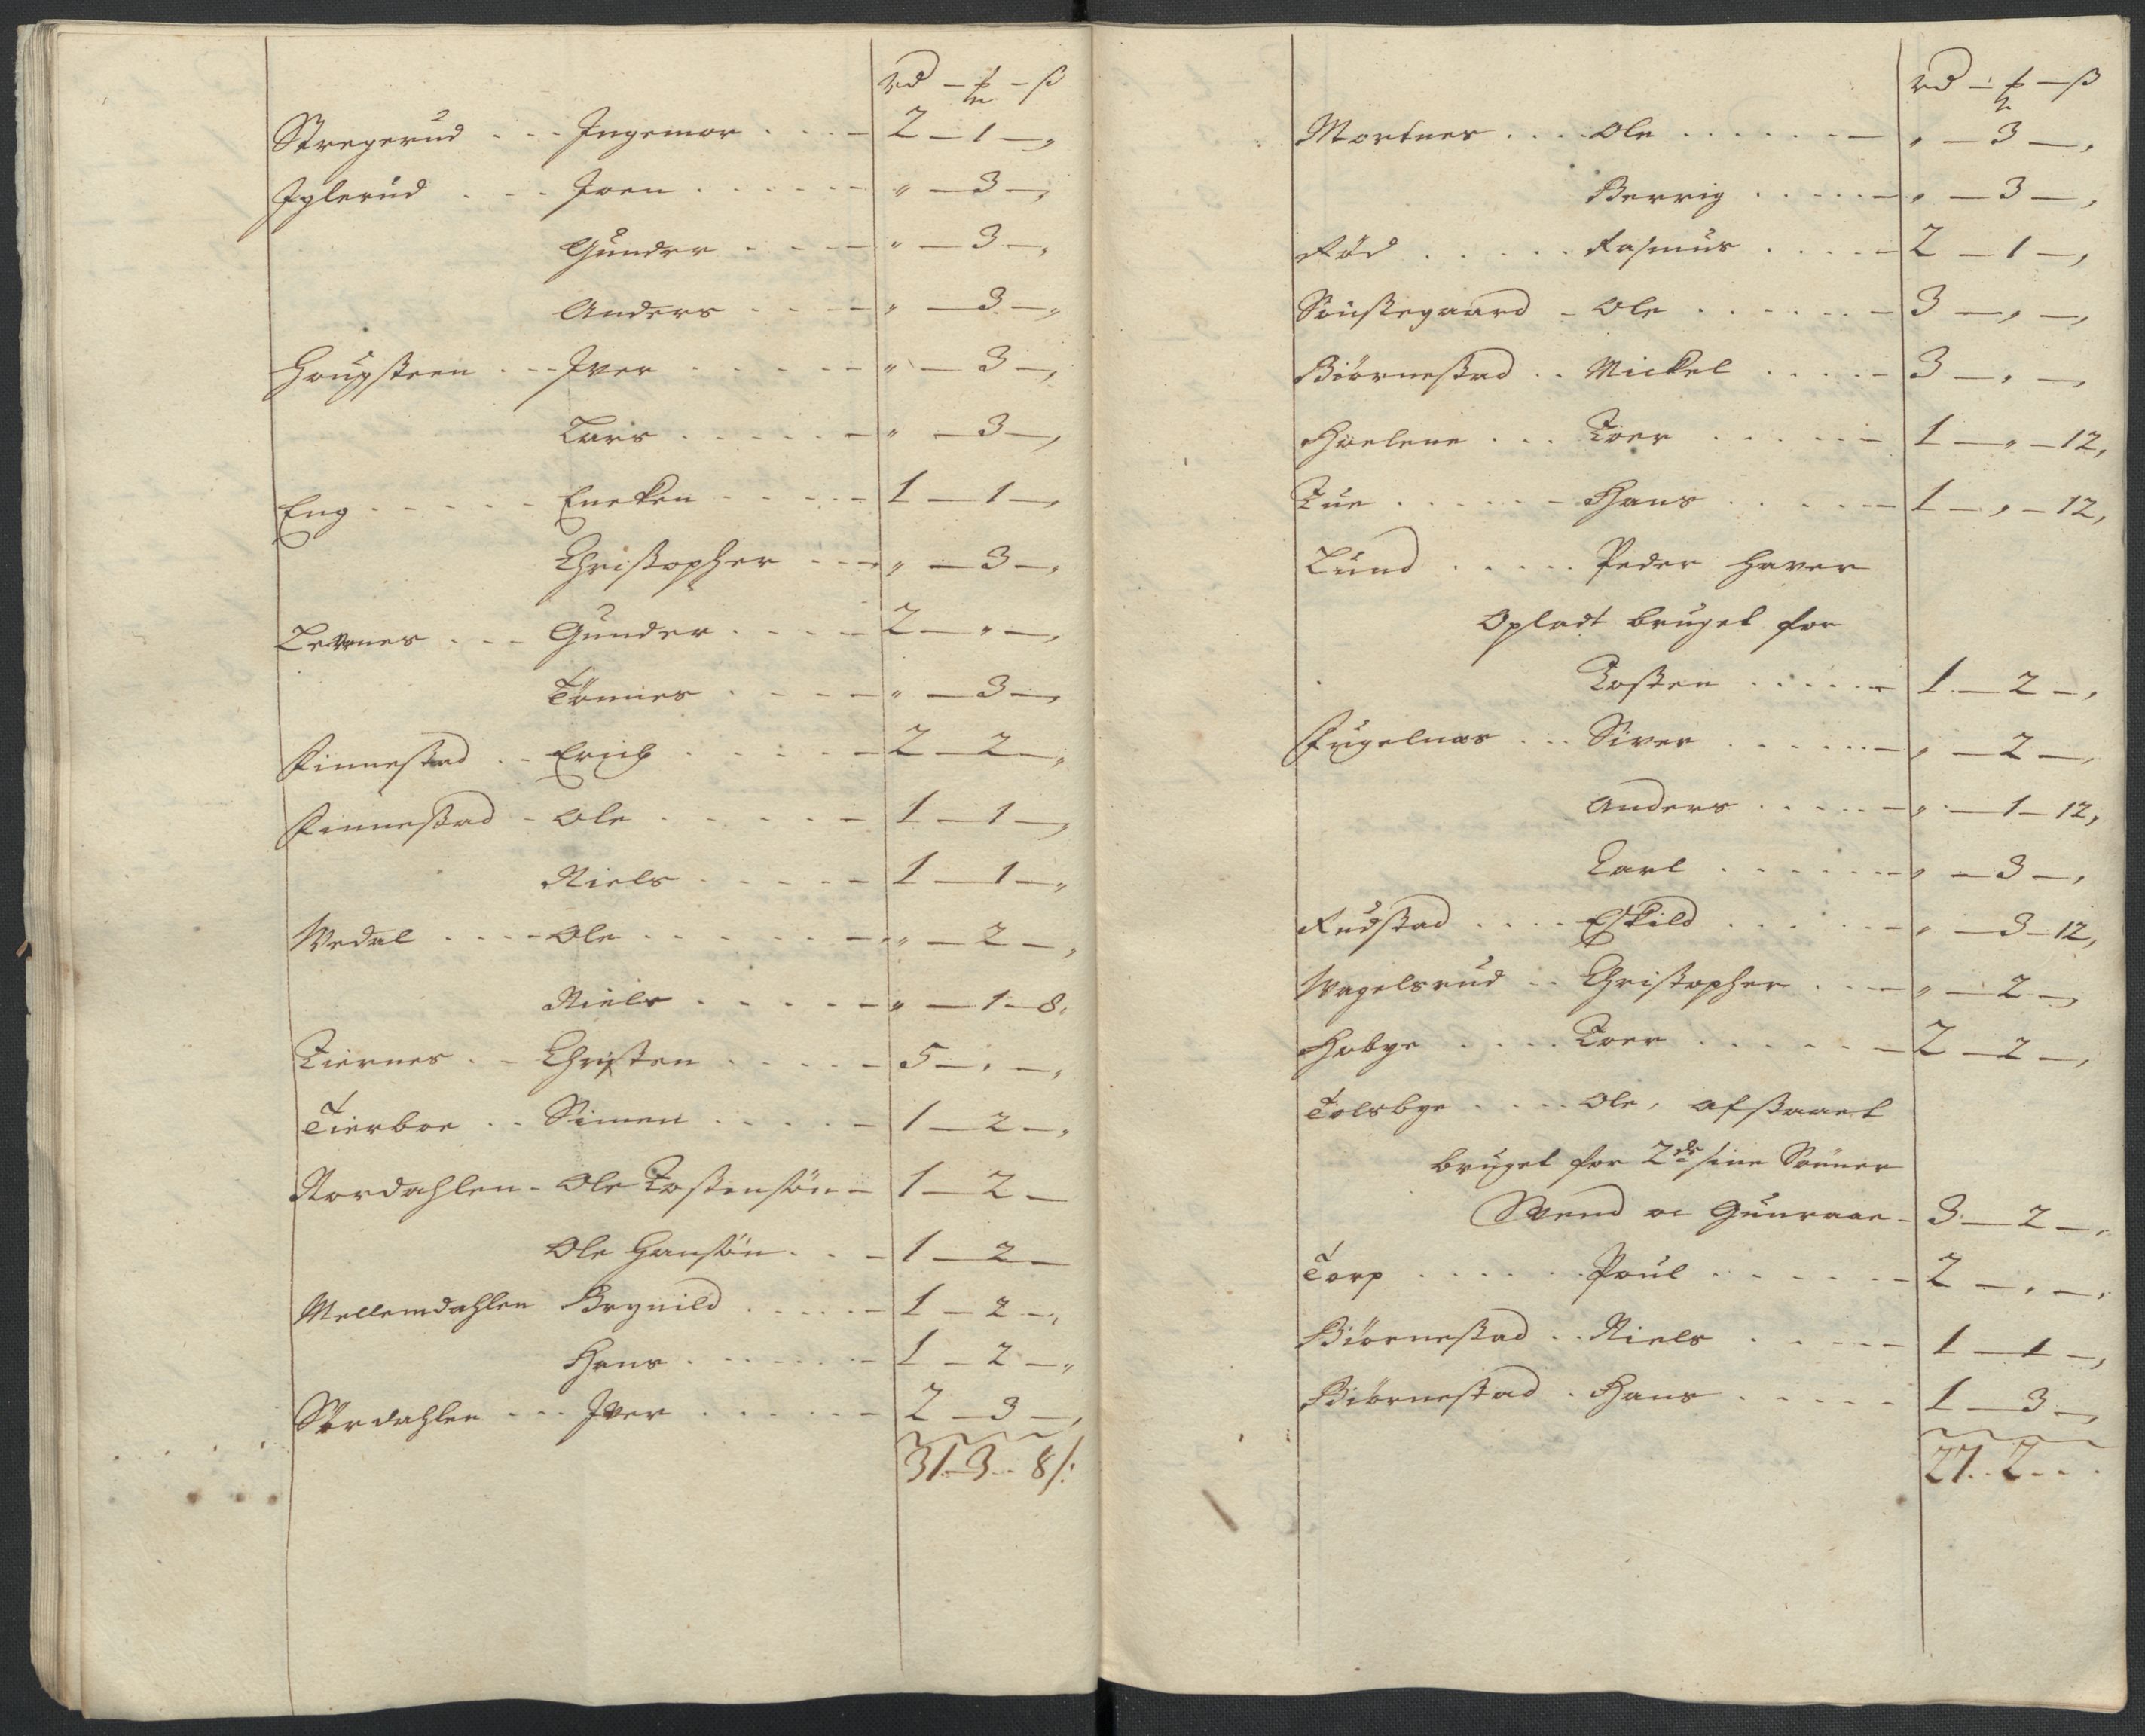 rd — ₰ — ß
Stregerud . . . Ingemor . . . — 2 — 1 — „
Iglerud . . . Joen . . . . . . „ — 3 — „
Gunder . . . — „ — 3 — „
Anders . . . — „ — 3 — „
Haugsteen . . . Iver . . . . . — „ — 3 — „
Lars . . . . . — „ — 3 — „
Eng . . . . . Eneken . . . . . 1 — 1 — „
Christopher . . . „ — 3 — „
Levernes . . . Gunder . . . — 2 — „ — „
Tönnes . . . . — „ — 3 — „
Finnestad . . Erich . . . . . — 2 — 2 — „
Finnestad - Ole . . . . . — 1 — 1 — „
Niels . . . . . — 1 — 1 — „
Wedal . . . . Ole . . . . . . „ — 2 — „
Niels . . . . . — „ — 1 — 8 „
Tiernes . . Christen . . . . — 5 — „ — „
Tierboe . . Simen . . . . . — 1 — 2 — „
Nordahlen - Ole Tostensön — 1 — 2 —
Ole Hansön . . — 1 — 2 —
Mellemdahlen Brynild . . . . — 1 — 2 — „
Hans . . . . . . — 1 — 2 — „
Sördahlen . . . Iver . . . . . — 2 — 3 — „
31 — 3 - 8 /:
rd — — ß
Mortnes . . . . Ole . . . . . . — „ — 3 — „
Berrig . . . . . — „ — 3 — „
Röd . . . . . Rasmus . . . . — 2 — 1 — „
Ole . . . . . — 3 — „ — „
Biörnestad . . Mickel . . . . — 3 — „ — „
Huelene . . . Toer . . . . . — 1 — „ — 12 „
Tue . . . . . — Hans . . . . . — 1 — „ — 12 „
Lund . . . . . Peder haver
Opladt bruget for
Tosten . . . . . — 1 — 2 — „
Fugelnæs . . . Siver . . . . . . — „ — 2 — „
Anders . . . . . — „ — 1 — 12 „
Carl . . . . . . — „ — 3 — „
Rudstad . . . . Eskild . . . . . . — „ — 3 — 12 „
Wagelsrud . . Christopher . . . — „ — 2 — „
Habye . . . . Toer . . . . . . — 2 — 2 — „
Tolsbye . . . . Ole, afstaaet
bruget for 2de sine Sönner
Svend oc Gunraae - 3 — 2 — „
Torp . . . . . . Poul . . . . . . — 2 — „ — „
Biörnestad . . Niels . . . . . — 1 — 1 — „
Biörnestad . Hans . . . . . — 1 — 3 — „
27 . . 2 . . .